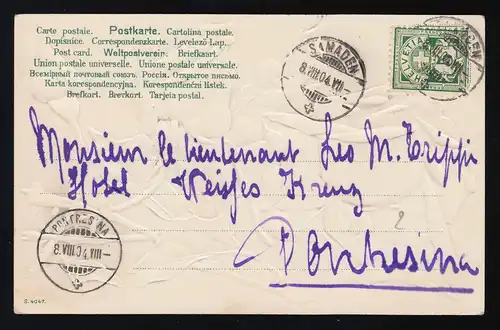 Carte postale. Postkarte. Cartolina postale.
Dopisnice. Correspondenzkarte. Levelező Lap.
Post card. Weltpostverein. Briefkaart.
Union postale universelle. Unione postale universale.
Всемірный почтовый союзъ. Россія. Открытое письмо.
Karta korespondencyjna. Korespondenčni listek.
Brefkort. Brevkort. Tarjeta postal.
SAMADEN
8.VIII.04.VII—
HELVETIA
Monsieur le lieutenant Leo M. Trippi
Hotel Weisses Kreuz
Pontresina
2
PONTRESINA
8.VIII.04.VIII—
S. 4047.